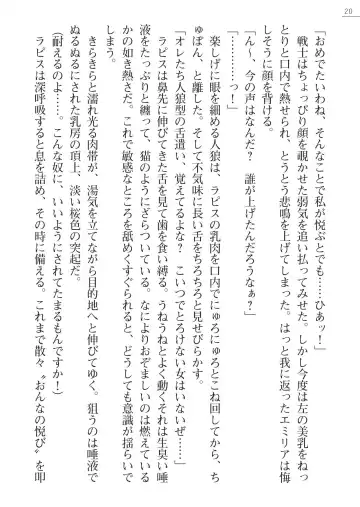 20
「おめでたいわね、そんなことで私が悦ぶとでも……ひあッ！」
　戦士はちょっぴり顔を覗かせた弱気を追い払ってみせた。しかし今度は左の美乳をねっ
とりと口内で熱せられ、とうとう悲鳴を上げてしまった。はっと我に返ったエミリアは悔
しそうに顔を背ける。
「ん～、今の声はなんだ？　誰が上げたんだろうなぁ？」
「………っ！」
　楽しげに眼を細める人狼は、ラピスの乳肉を口内でにゅろにゅろとこね回してから、ち
ゅぽん、と離した。そして不気味に長い舌をちろちろと見せびらかす。
「オレたち人狼型の舌遣い、覚えてるよな？　こいつでとろけない女はいないぜ……」
　ラピスは鼻先に伸びてきた舌を見て歯を食い縛る。うねうねとよく動くそれは生臭い唾
液をたっぷりと纏って、猫のようにざらついている。なによりおぞましいのは燃えている
かの如き熱さだ。これで敏感なところを舐めくすぐられると、どうしても意識が揺らいで
しまう。
　きらきらと濡れ光る肉帯が、湯気を立てながら目的地へと伸びてゆく。狙うのは唾液で
ぬるぬるにされた乳房の頂上、淡い桜色の突起だ。
（耐えるのよ……。こんな奴に、いいようにされてたまるもんですか！）
　ラピスは深呼吸すると息を詰め、その時に備える。これまで散々〝おんなの悦び〟を叩